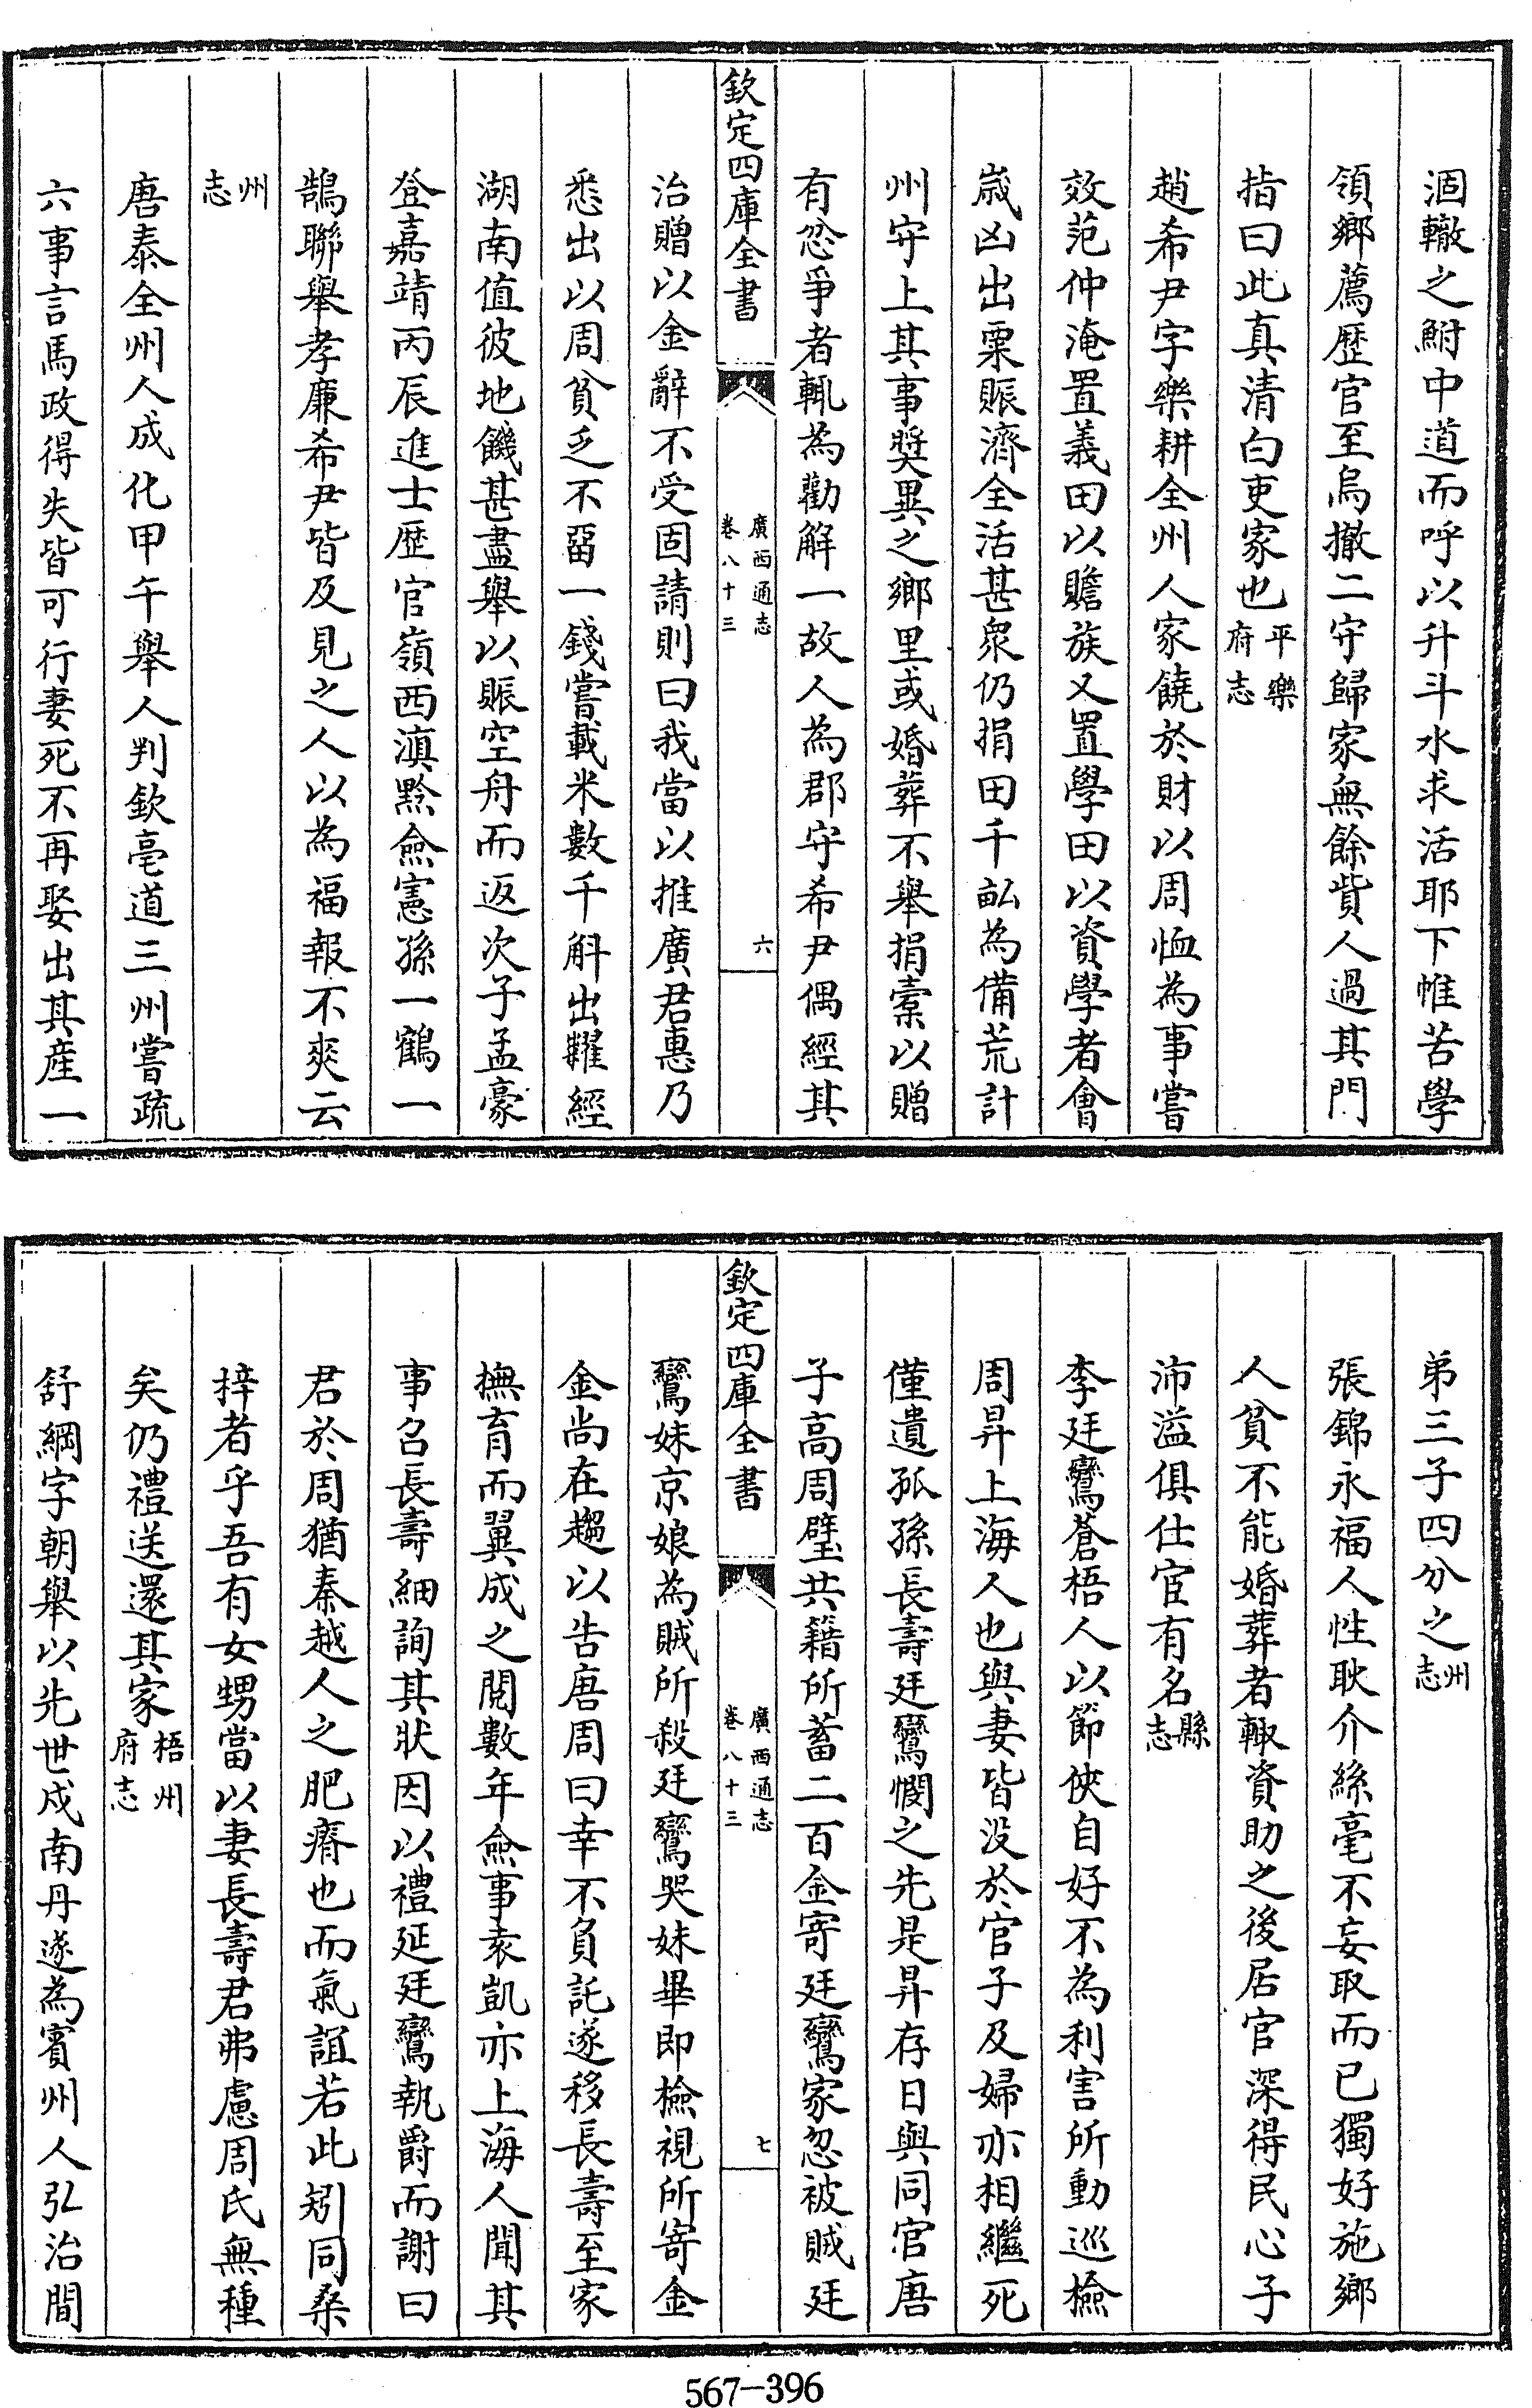 涸轍之鮒中道而呼以升斗水求活耶下帷苦學
領鄉薦歴官至烏撒二守歸家無餘貲人過其門
指曰此真清白吏家也平樂府志
趙希尹字樂耕全州人家饒於財以周恤為事嘗
效范仲淹置義田以贍族又置學田以資學者會
嵗凶出粟賑濟全活甚衆仍捐田千畆為備荒計
州守上其事奬異之鄉里或婚葬不舉捐槖以贈
有忿爭者輒為勸解一故人為郡守希尹偶經其
欽定四庫全書
廣西通志
卷八十三
六
治贈以金辭不受固請則曰我當以推廣君惠乃
悉出以周貧乏不畱一錢嘗載米數千斛出糶經
湖南值彼地饑甚盡舉以賑空舟而返次子孟豪
登嘉靖丙辰進士歴官嶺西滇黔僉憲孫一鶴一
鵠聯舉孝廉希尹皆及見之人以為福報不爽云
州志
唐泰全州人成化甲午舉人判欽亳道三州嘗疏
六事言馬政得失皆可行妻死不再娶出其産一
弟三子四分之州志
張錦永福人性耿介絲毫不妄取而已獨好施鄉
人貧不能婚葬者輙資助之後居官深得民心子
沛溢俱仕宦有名縣志
李廷鸞蒼梧人以節俠自好不為利害所動巡檢
周昇上海人也與妻皆沒於官子及婦亦相繼死
僅遺孤孫長壽廷鸞憫之先是昇存日與同官唐
子高周璧共籍所蓄二百金寄廷鸞家忽被賊廷
欽定四庫全書
廣西通志
卷八十三
七
鸞妹京娘為賊所殺廷鸞哭妹畢即檢視所寄金
金尚在趨以告唐周曰幸不負託遂移長壽至家
撫育而翼成之閱數年僉事袁凱亦上海人聞其
事召長壽細詢其狀因以禮延廷鸞執爵而謝曰
君於周猶秦越人之肥瘠也而氣誼若此矧同桑
梓者乎吾有女甥當以妻長壽君弗慮周氏無種
矣仍禮送還其家梧州府志
舒綱字朝舉以先世戍南丹遂為賓州人弘治間
567-396